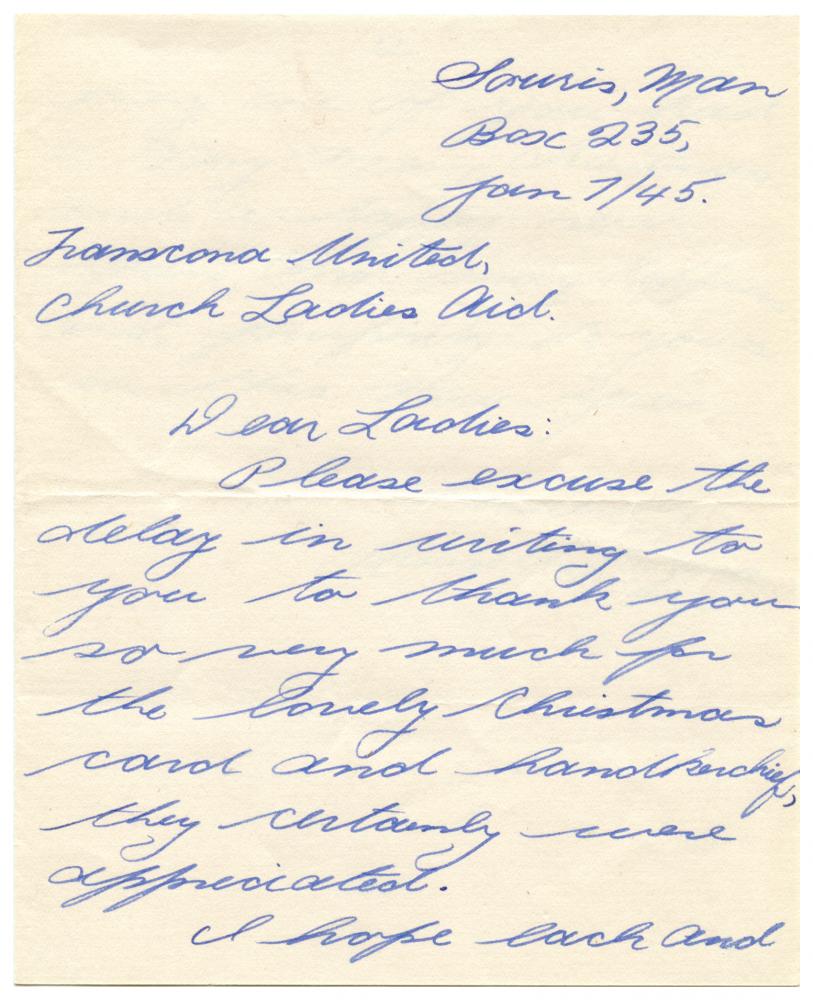 Souris, Man
Box 235,
Jan 7/45.
Transcona United,
Church Ladies Aid.
Dear Ladies:
Please excuse the
delay in writing to
you to thank you
so very much for
the lovely Christmas
card and handkerchief,
they certainly were
appreciated.
I hope each and